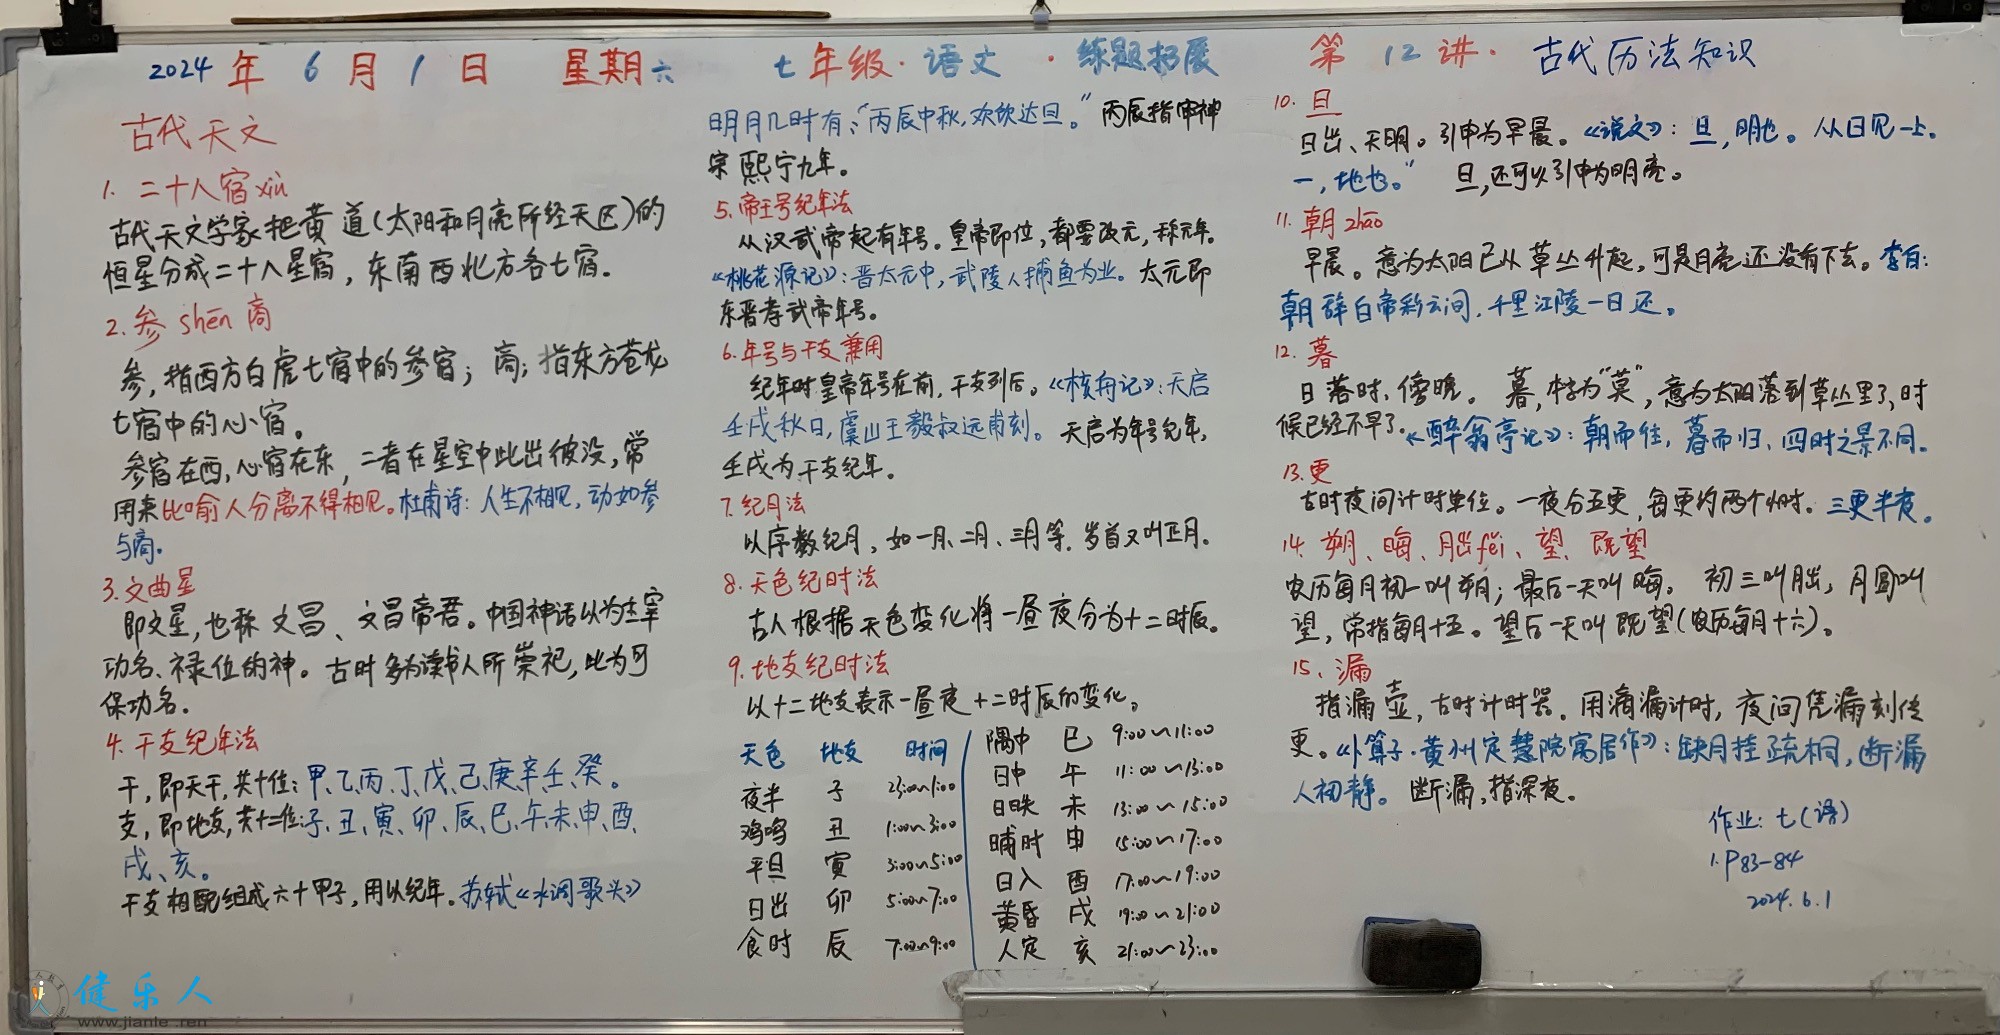 2024年6月1日 星期六 七年级·语文·练题拓展 第12讲· 古代历法知识
古代天文
1. 二十八宿xiù
古代天文学家把黄道(太阳和月亮所经天区)的
恒星分成二十八星宿，东南西北方各七宿.
2.参 shēn 商
参，指西方白虎七宿中的参宿；商；指东方苍龙
七宿中的心宿。
参宿在西，心宿在东，二者在星空中此出彼没，常
用来比喻人分离不得相见。杜甫诗：人生不相见，动如参
与商.
3.文曲星
即文星，也称文昌、文昌帝君。中国神话以为主宰
功名、禄位的神。古时多为读书人所崇祀，此为可
保功名.
4.干支纪年法
干，即天干，共十位：甲、乙、丙、丁、戊、己、庚、辛、壬、癸。
支，即地支，共十二位：子、丑、寅、卯、辰、巳、午、未、申、酉、
戌、亥。
干支相配组成六十甲子，用以纪年。苏轼《水调歌头》
明月几时有:“丙辰中秋，欢饮达旦。”丙辰指宋神
宗 熙宁九年。
5.帝王号纪年法
从汉武帝起有年号。皇帝即位，都要改元，称元年。
《桃花源记》：晋太元中，武陵人捕鱼为业。太元即
东晋孝武帝年号。
6.年号与干支兼用
纪年时皇帝年号在前，干支列后。《核舟记》：天启
壬戌秋日，虞山王毅叔远甫刻。天启为年号纪年，
壬戌为干支纪年。
7.纪月法
以序数纪月，如一月、二月、三月等.岁首又叫正月.
8.天色纪时法
古人根据天色变化将一昼夜分为十二时辰。
9.地支纪时法
以十二地支表示一昼夜十二时辰的变化。
天色 地支 时间
夜半 子 23:00~1:00
鸡鸣 丑 1:00~3:00
平旦 寅 3:00~5:00
日出 卯 5:00~7:00
食时 辰 7:00~9:00
隅中 巳 9:00~11:00
日中 午 11:00~13:00
日昳 未 13:00~15:00
晡时 申 15:00~17:00
日入 酉 17:00~19:00
黄昏 戌 19:00~21:00
人定 亥 21:00~23:00
10. 旦
日出、天明。引申为早晨。《说文》：旦，明也。从日见一上。
一，地也。” 旦，还可以引申为明亮。
11. 朝zhāo
早晨。意为太阳已从草丛升起，可是月亮还没有下去。李白：
朝辞白帝彩云间，千里江陵一日还。
12. 暮
日落时，傍晚。暮，本字为“莫”，意为太阳落到草丛里了，时
候已经不早了.《醉翁亭记》：朝而往，暮而归，四时之景不同.
13.更
古时夜间计时单位。一夜分五更，每更约两个小时.三更半夜。
14.朔、晦、朏fěi、望、既望
农历每月初一叫朔；最后一天叫晦。初三叫朏，月圆叫
望，常指每月十五。望后一天叫既望(农历每月十六)。
15、漏
指漏壶，古时计时器。用滴漏计时，夜间凭漏刻传
更。《卜算子·黄州定慧院寓居作》：缺月挂疏桐，断漏
人初静。断漏，指深夜。
作业：七(语)
1.P83-84
2024.6.1
健乐人
www.jianle.ren